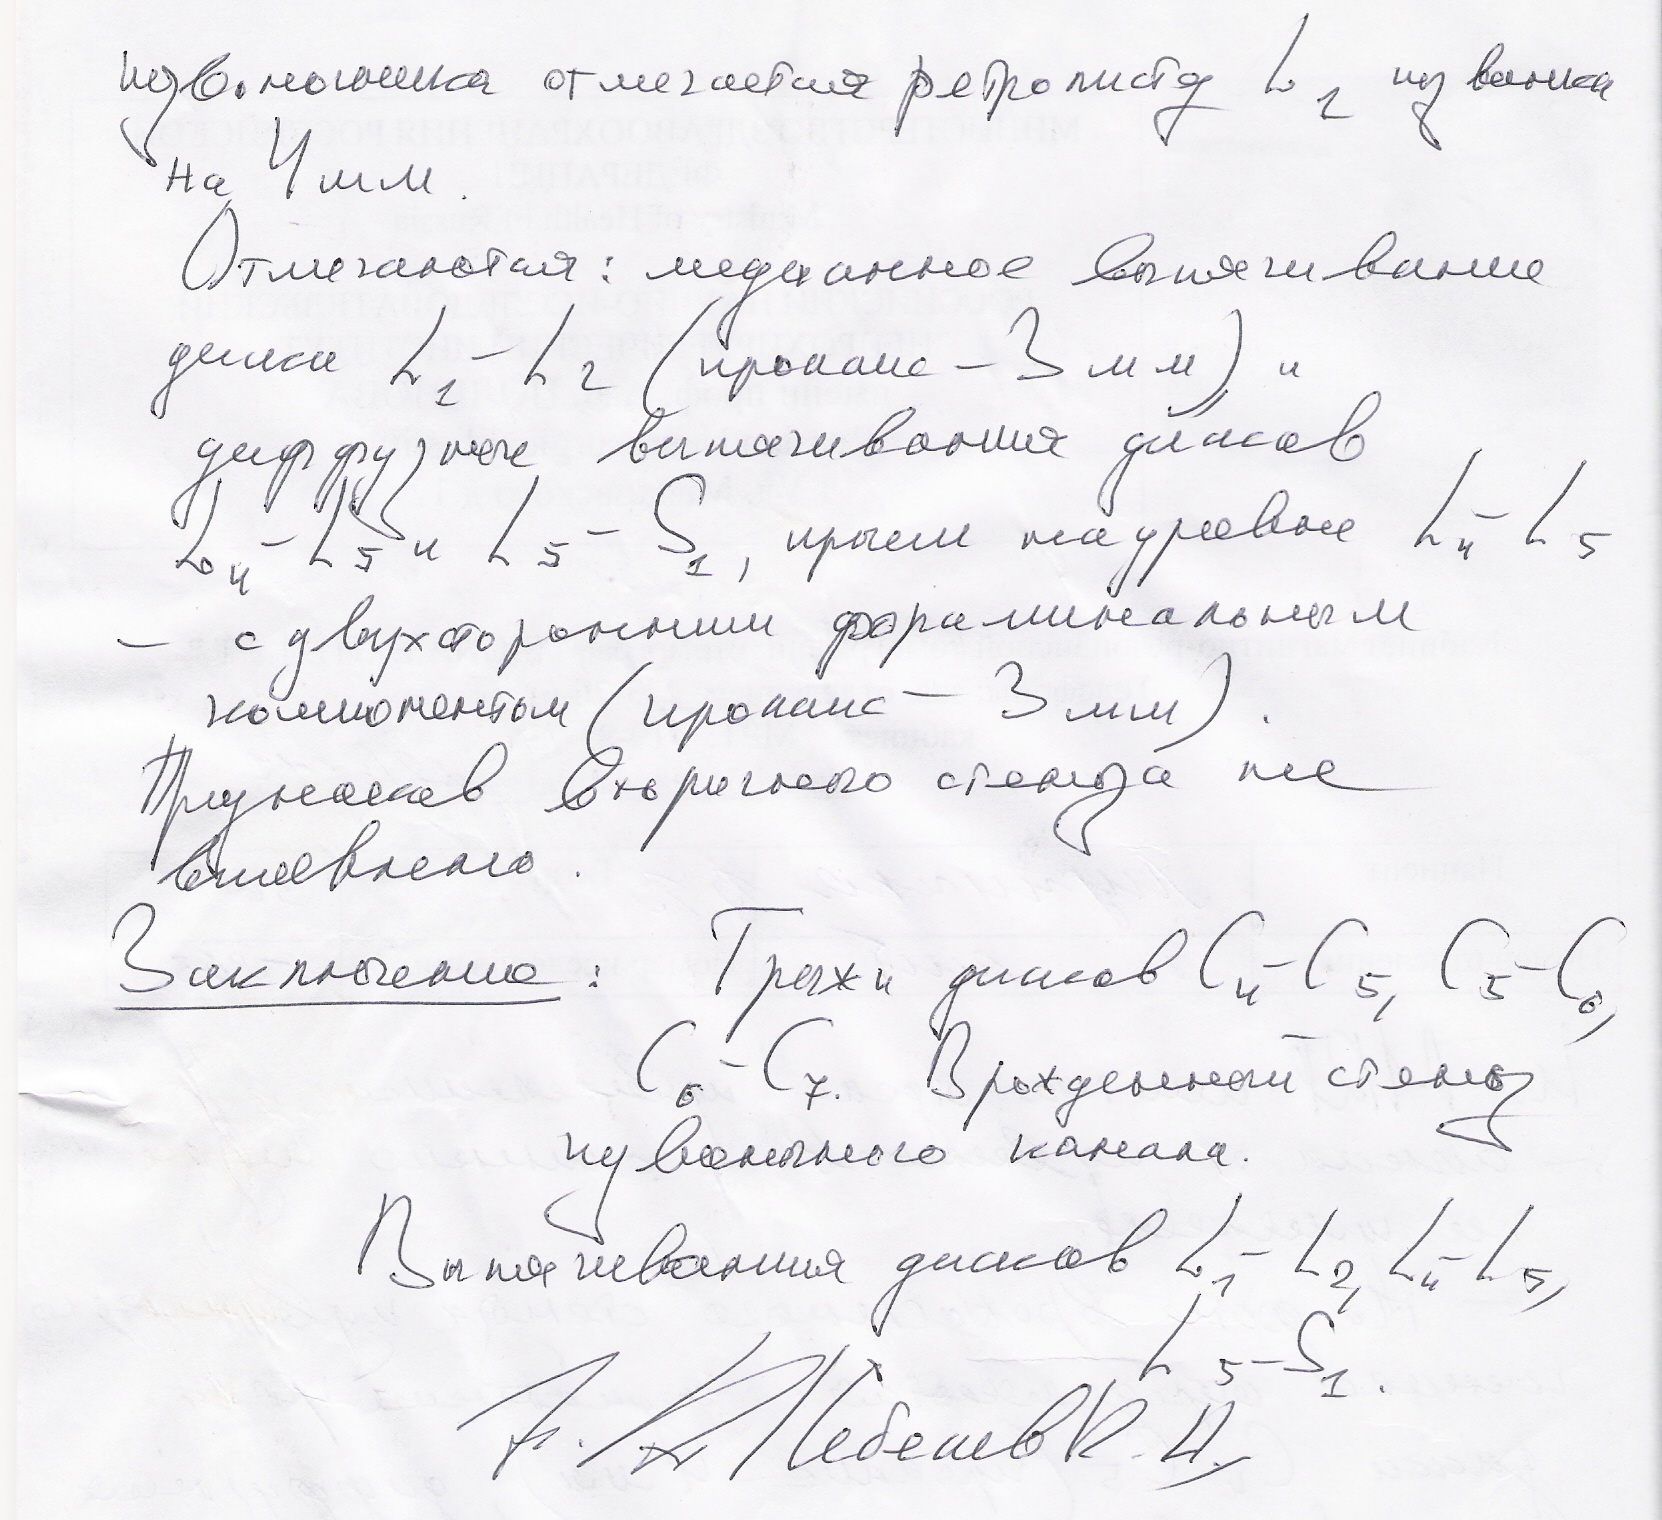 позвоночника отмечается ретролистез L1 позвонка
на 4 мм.
Отмечаются: медианное выпячивание
диска L1-L2 (пролапс - 3 мм) и
диффузные выпячивания дисков
L4-L5 и L5-S1, причем на уровне L4-L5
- с двухсторонним фораминальным
компонентом (пролапс - 3 мм).
Признаков вторичного стеноза не
выявлено.
Заключение: Грыжи дисков C4-C5, C5-C6,
C6-C7. Врожденный стеноз
позвоночного канала.
Выпячивания дисков L1-L2, L4-L5,
L5-S1.